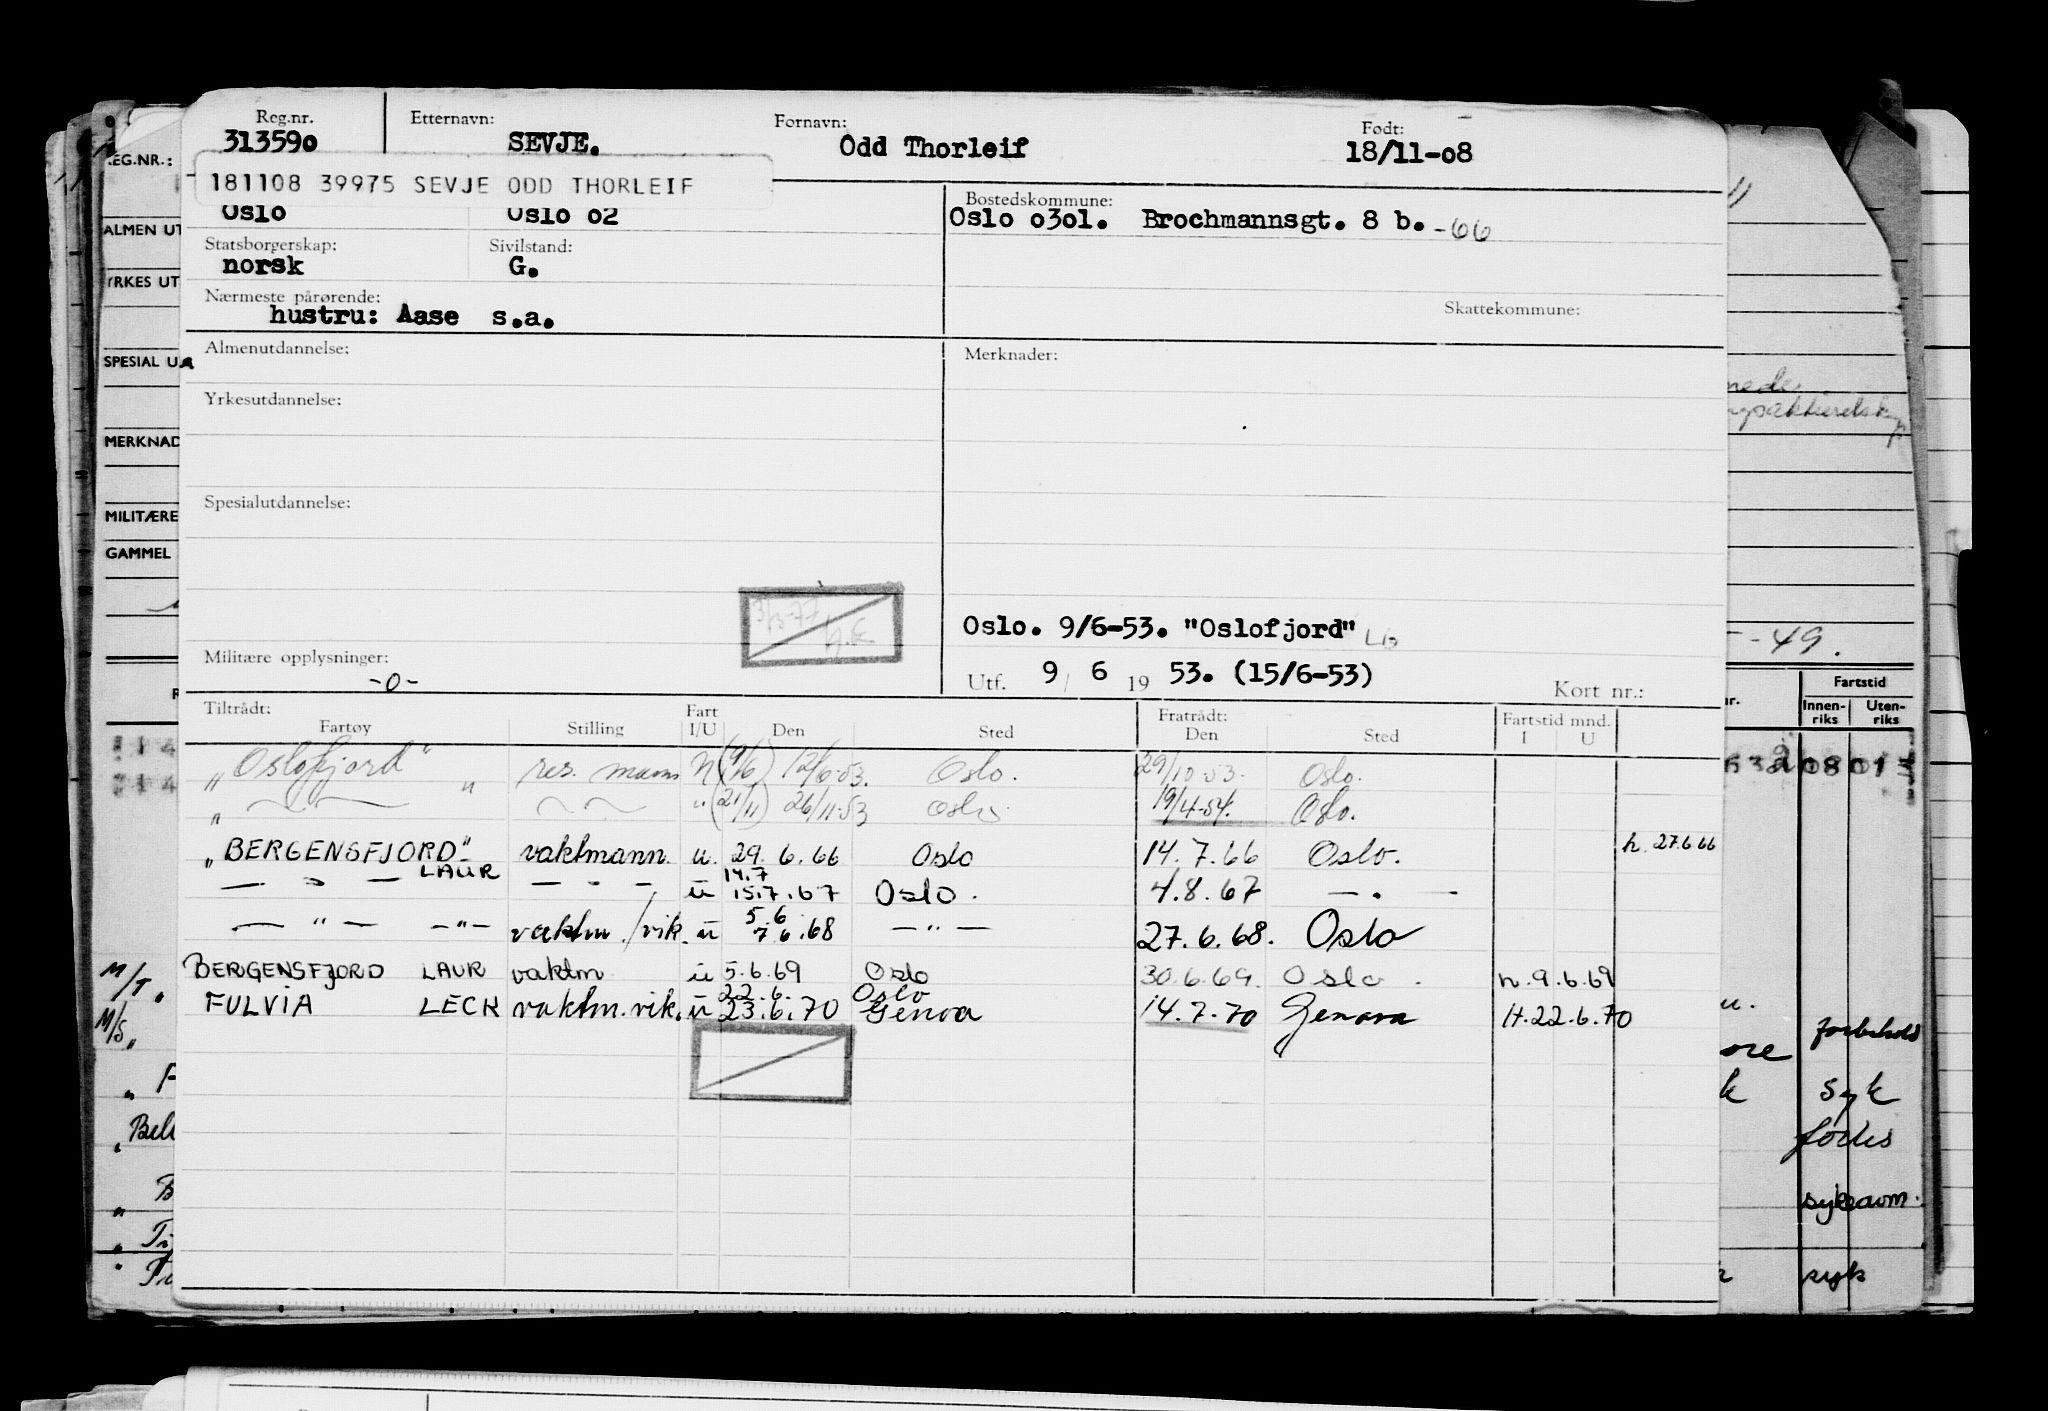 Reg.nr. Etternavn: Fornavn: Født:
313590 SEVJE. Odd Thorleif 18/11-08
181108 39975 SEVJE ODD THORLEIF
Bostedskommune:
Oslo Oslo 02 Oslo 0301. Brochmannsgt. 8 b. -66
Statsborgerskap: Sivilstand:
norsk G.
Nærmeste pårørende: Skattekommune:
hustru: Aase s.a.
Almenutdannelse: Merknader:
Yrkesutdannelse:
Spesialutdannelse:
Oslo. 9/6-53. "Oslofjord"
Militære opplysninger:
-o-
Utf. 9 / 6 19 53. (15/6-53)
Kort nr.:
Tiltrådt: Fart Fratrådt: Fartstid mnd.
Fartøy Stilling I/U Den Sted Den Sted I U
"Oslofjord" res. mann (9/6) 12/6-53. Oslo. 29/10-53. Oslo.
" — " — " (21/11) 26/11-53 Oslo 19/4-54. Oslo.
"BERGENSFJORD" vaktmann u. 29. 6. 66 Oslo 14. 7. 66 Oslo. h. 27.6 66
— " — LAUR — " — ū 14.7 15.7.67 Oslo. 4.8.67 — " —
— " — — " — vaktm./vik. ū 5.6 7.6.68 — " — 27.6.68. Oslo
BERGENSFJORD LAUR vaktm ū 5.6.69 Oslo 30.6.69. Oslo. h. 9.6.69
FULVIA LECK vaktm.vik. ū 22.6. 23.6.70 Oslo Genova 14.7.70 Genova H.22.6.70
REG.NR.:
ALMEN UT
YRKES UT
SPESIAL U
MERKNAD
MILITÆRE
GAMMEL
M/T "
M/S "
" F
" B
" Ti
-49.
Fartstid
Innen-riks Uten-riks
syk
syk